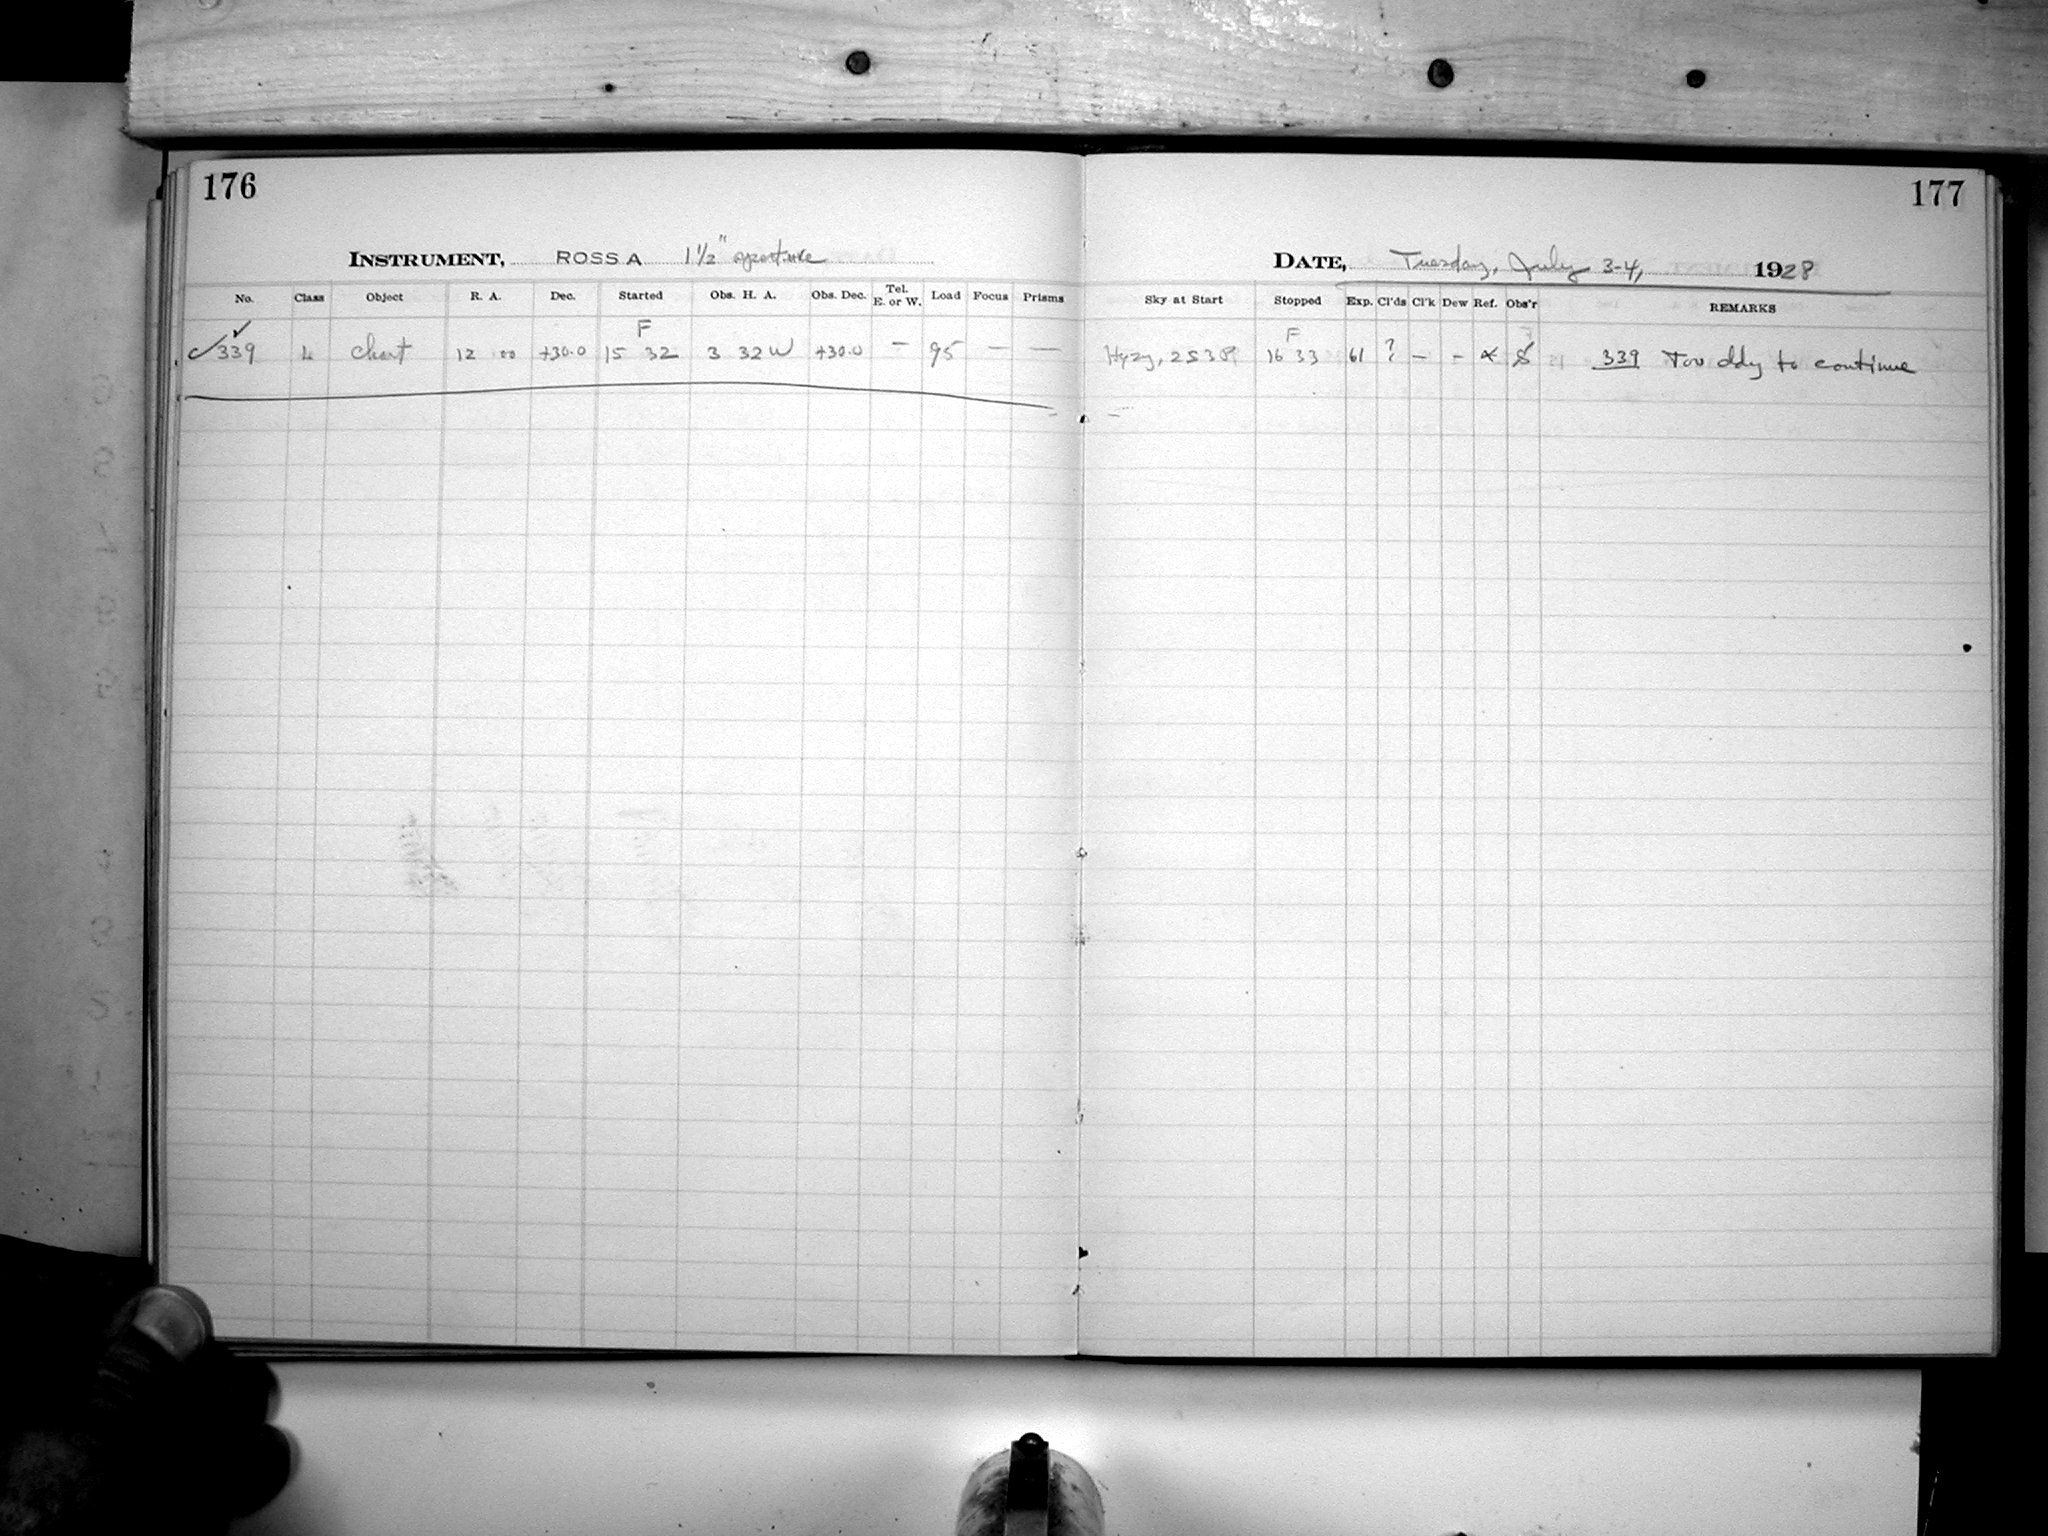 176
INSTRUMENT, ROSS A 1 1/2" aperture
No. Class Object R. A. Dec. Started Obs. H. A. Obs. Dec. Tel. E. or W. Load Focus Prisms
F
339 L Chart 12 00 +30.0 15 32 3 32 W +30.0 — 95 — —
177
DATE, Tuesday, July 3-4, 1928
Sky at Start Stopped Exp. Cl'ds Cl'k Dew Ref. Obs'r REMARKS
F
Hyzy, 16 33 61 ? — - 339 Too cldy to continue